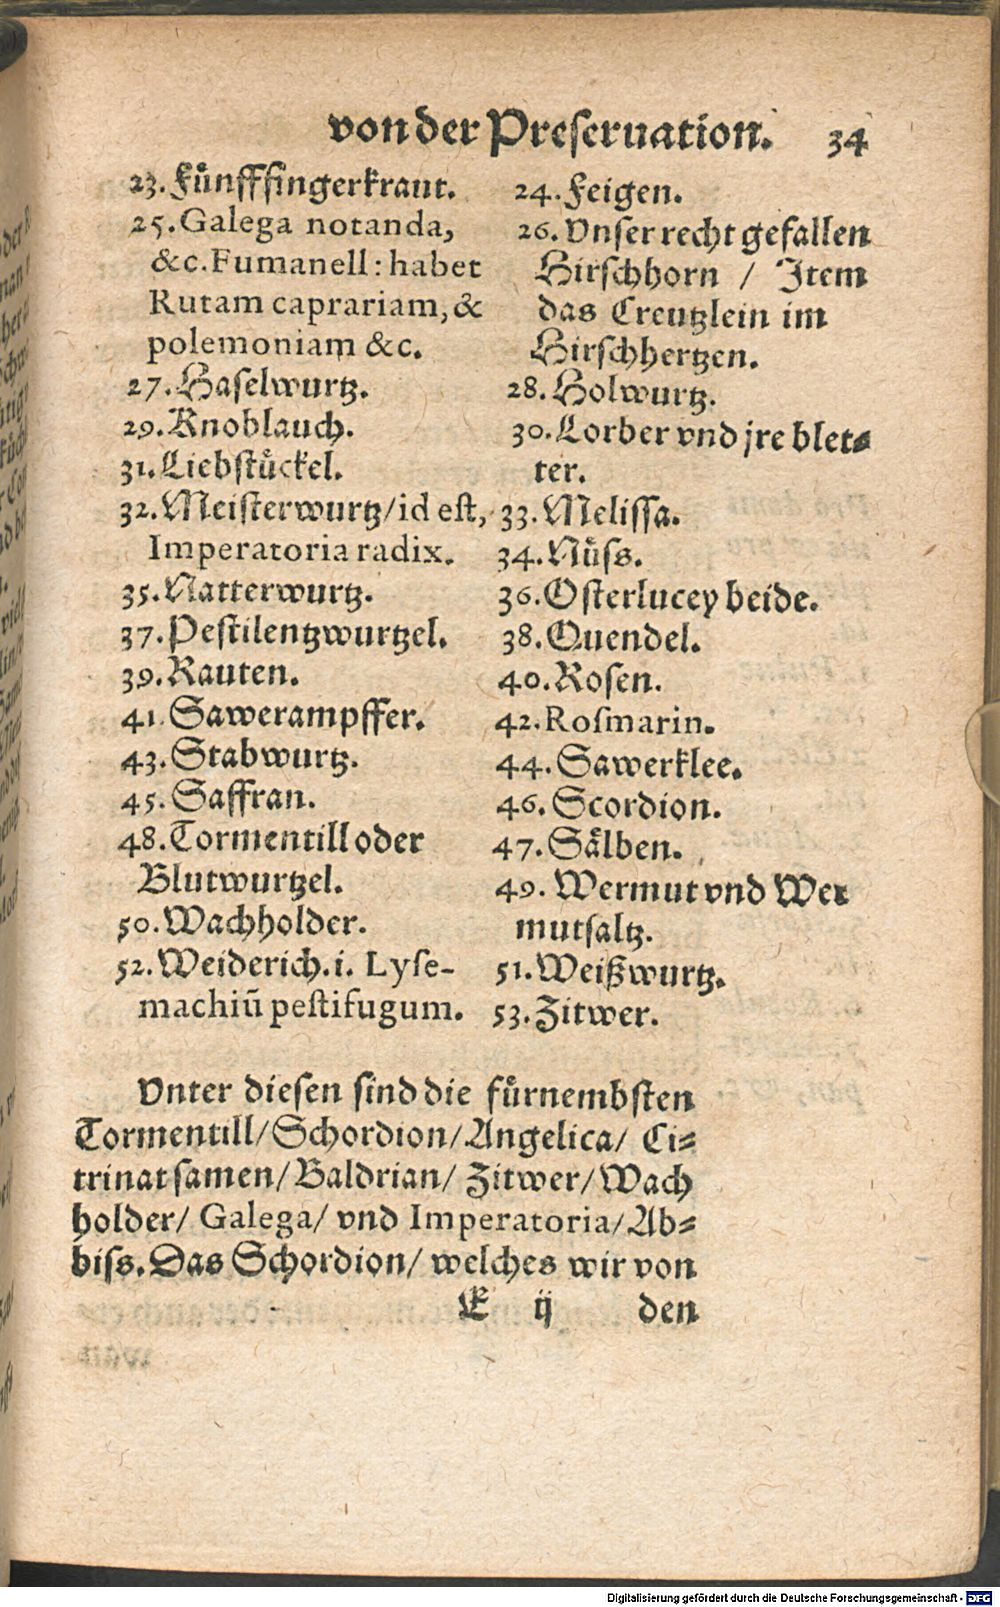 von der Preseruation. 34
23. Fůnfffingerkraut.
25. Galega notanda,
&c. Fumanell: habet
Rutam caprariam, &
polemoniam &c.
27. Haselwurtz.
29. Knoblauch.
31. Liebstůckel.
32. Meisterwurtz/id est,
Imperatoria radix.
35. Natterwurtz.
37. Pestilentzwurtzel.
39. Rauten.
41. Sawerampffer.
43. Stabwurtz.
45. Saffran.
48. Tormentill oder
Blutwurtzel.
50. Wachholder.
52. Weiderich. i. Lyse-
machiū pestifugum.
24. Feigen.
26. Vnser recht gefallen
Hirschhorn / Item
das Creutzlein im
Hirschhertzen.
28. Holwurtz.
30. Lorber vnd jre blet-
ter.
33. Melissa.
34. Nůss.
36. Osterlucey beide.
38. Quendel.
40. Rosen.
42. Rosmarin.
44. Sawerklee.
46. Scordion.
47. Sålben.
49. Wermut vnd Wer
mutsaltz.
51. Weißwurtz.
53. Zitwer.
Vnter diesen sind die fůrnembsten
Tormentill/Schordion/Angelica/ Ci-
trinatsamen/Baldrian/ Zitwer/Wach
holder/ Galega/ vnd Imperatoria/Ab-
biss. Das Schordion/ welches wir von
E ij den
Digitalisierung gefördert durch die Deutsche Forschungsgemeinschaft - DFG